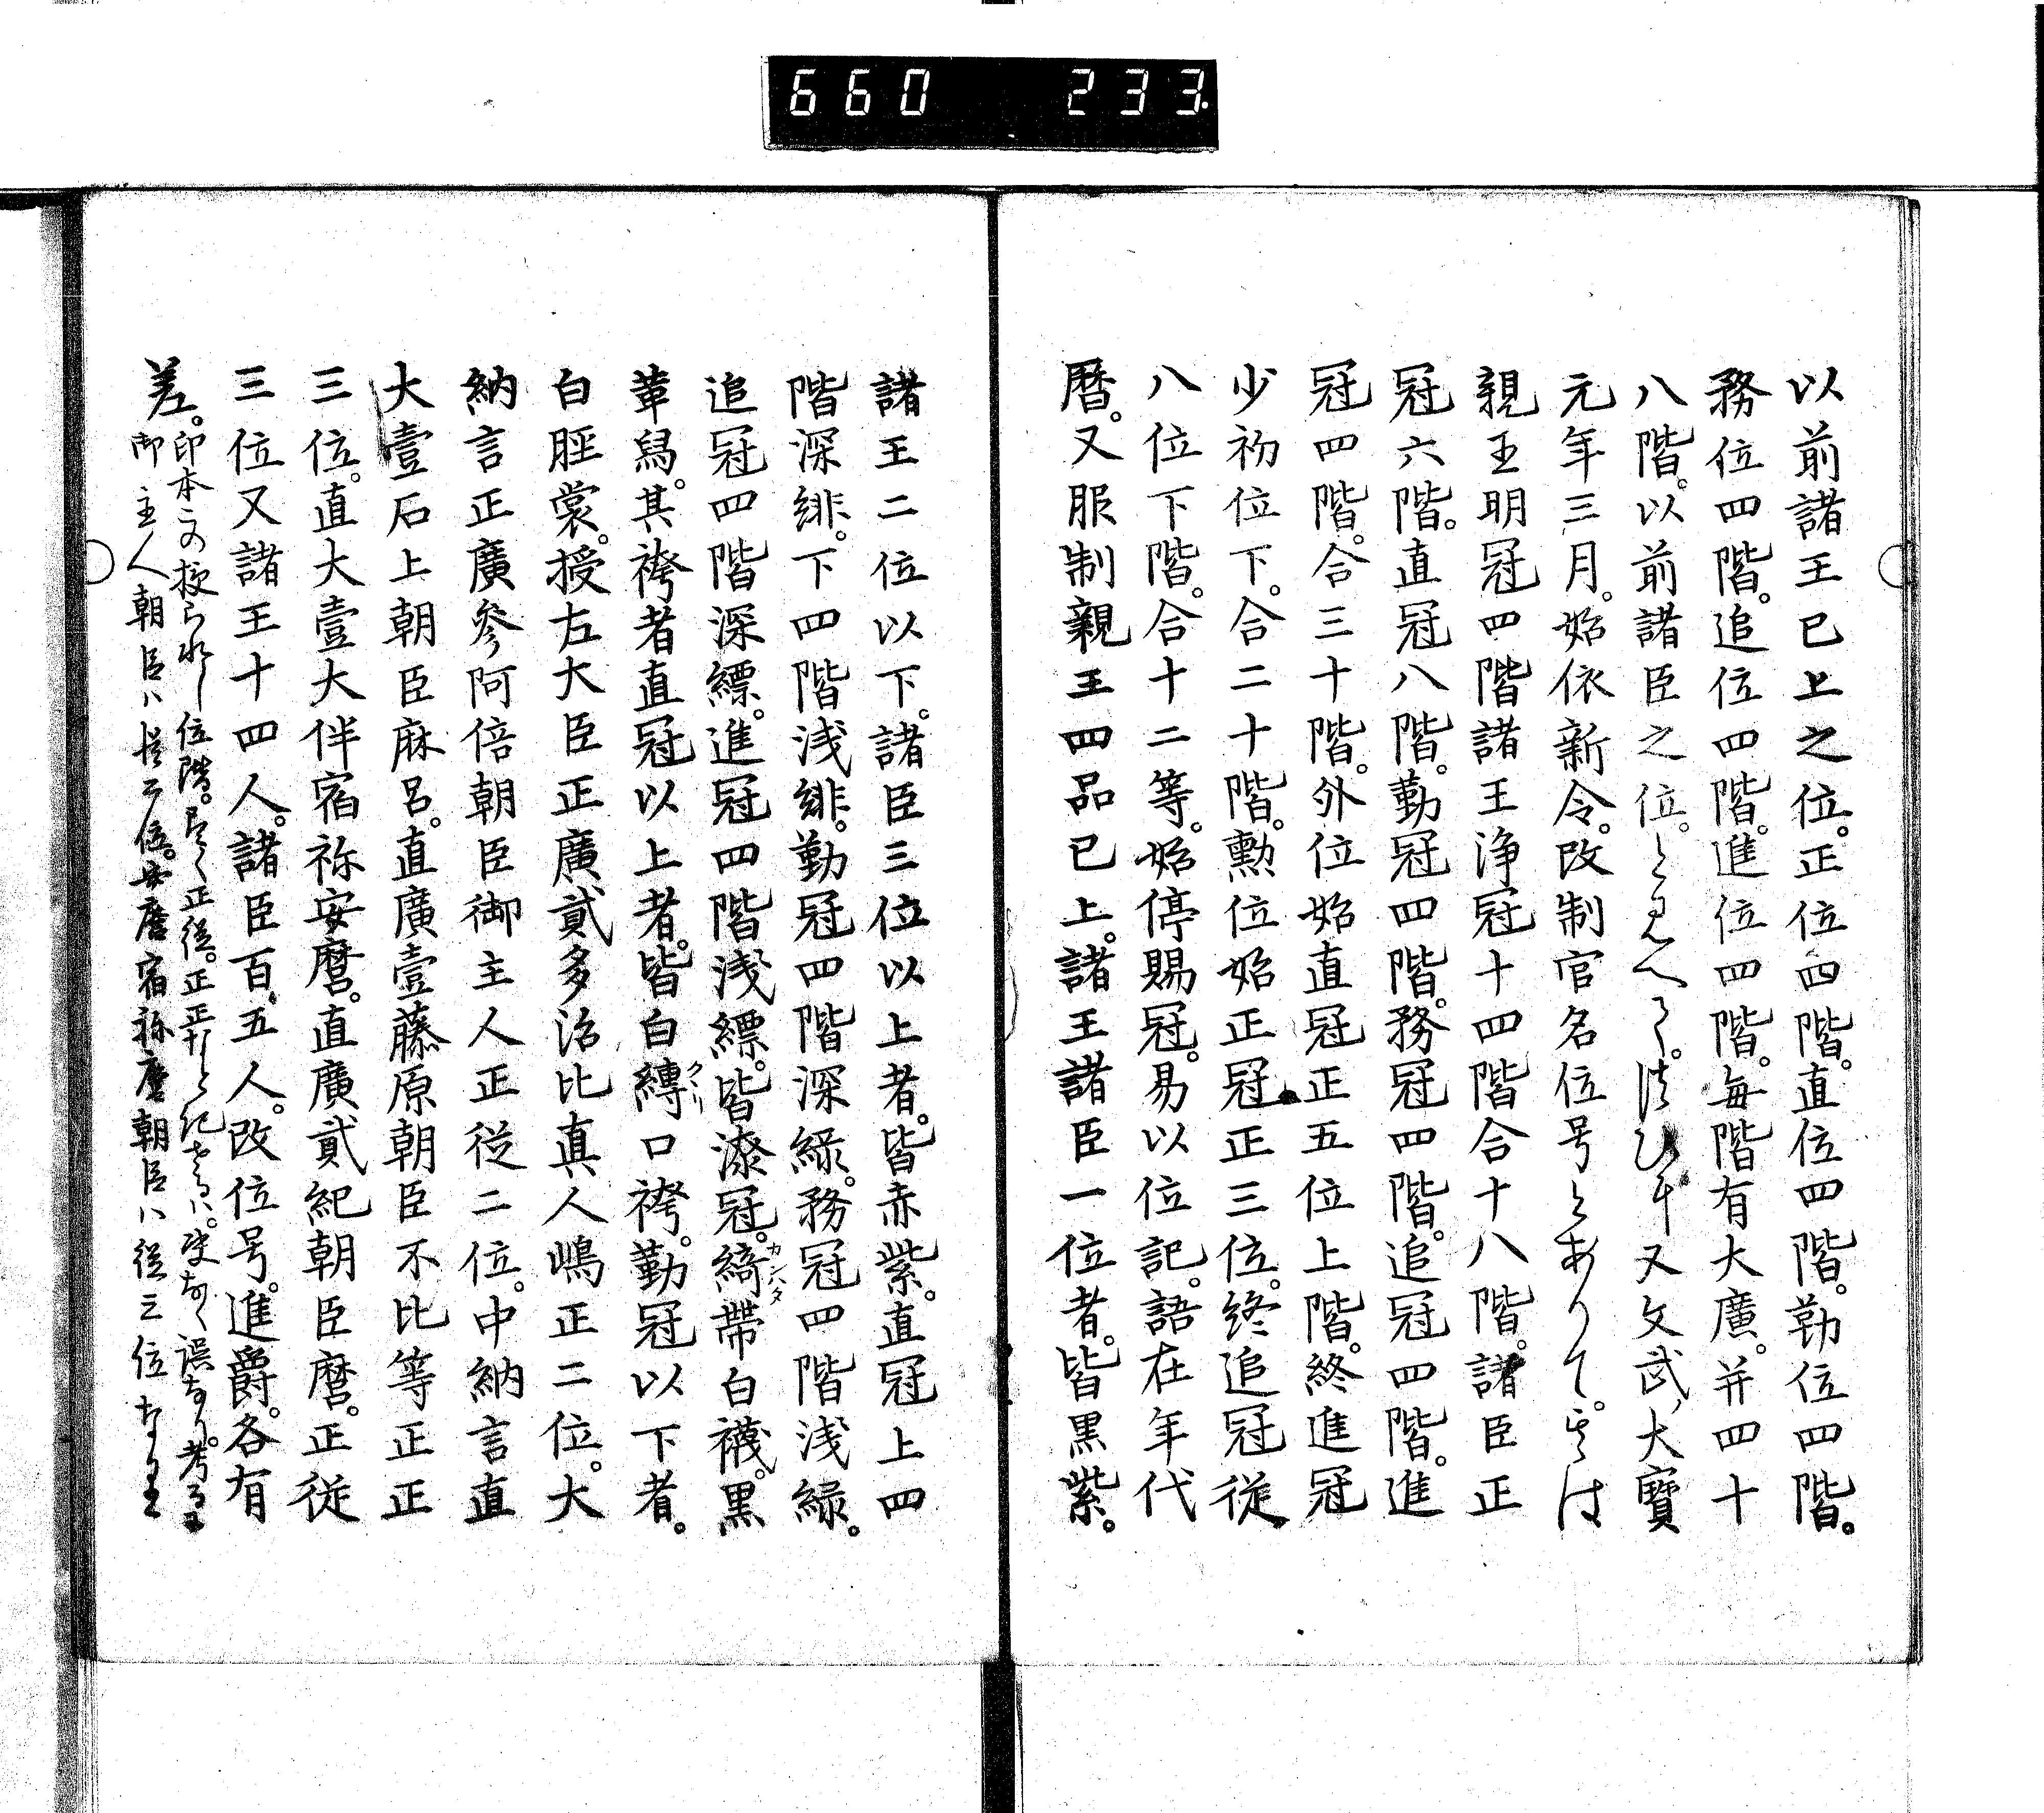 660 233.
以前諸王已上之位。正位四階。直位四階。勤位四階。
務位四階。追位四階。進位四階。毎階有大廣。并四十
八階。以前諸臣之位。と見へ 又文武、大寶
元年三月。始依新令。改制官名位号とありて。
親王明冠四階諸王浄冠十四階合十八階。諸臣正
冠六階。直冠八階。勤冠四階。務冠四階。追冠四階。進
冠四階。合三十階。外位始直冠正五位上階。終進冠
少初位下。合二十階。勲位始正冠正三位。終追冠従
八位下階。合十二等。始停賜冠。易以位記。語在年代
暦。又服制親王四品已上。諸王諸臣一位者。皆黒紫。
諸王二位以下。諸臣三位以上者。皆赤紫。直冠上四
階深緋。下四階浅緋。勤冠四階深緑。務冠四階浅緑。
追冠四階深縹。進冠四階浅縹。皆漆冠。綺カンハタ帯白襪。黒
革舄。其袴者直冠以上者。皆白縛口袴。勤冠以下者。
白脛裳。授左大臣正廣貳多治比真人嶋正二位。大
納言正廣参阿倍朝臣御主人正従二位。中納言直
大壹石上朝臣麻呂。直廣壹藤原朝臣不比等正正
三位。直大壹大伴宿祢安麿。直廣貳紀朝臣麿。正従
三位又諸王十四人。諸臣百五人。改位号。進爵。各有
差。印本 授られし位階。 正従。正正 誤なり。考るに
御主人朝臣ハ 位。安麿宿祢麿朝臣ハ従三位なりき